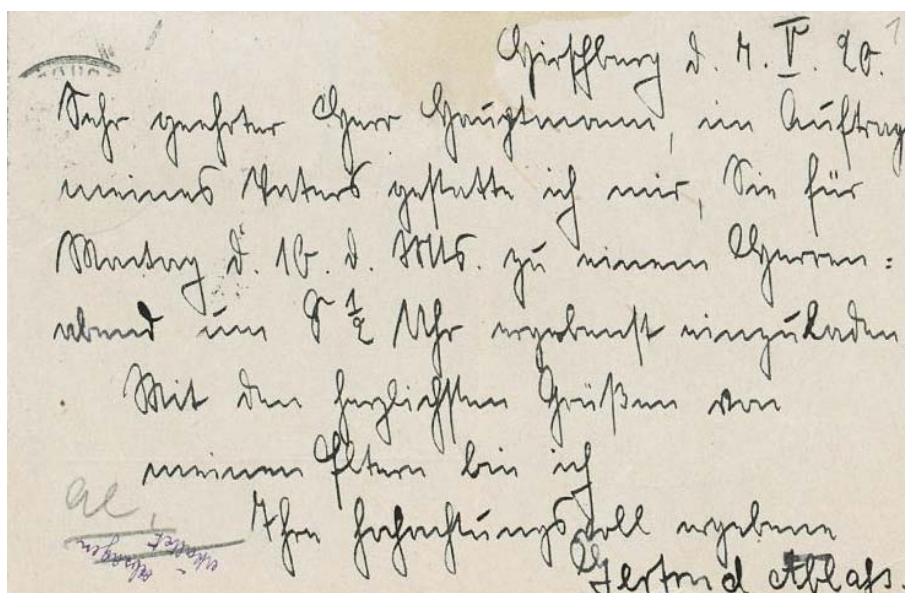 Hirschberg d. 7. V. 20.
Sehr geehrter Herr Hauptmann, im Auftrag
meines Vaters gestatte ich mir, Sie für
Montag d. 10. d. Mts. zu einem Herren=
abend um 8 1/2 Uhr ergebenst einzuladen
Mit den herzlichsten Grüßen von
meinen Eltern bin ich
Ihre hochachtungsvoll ergebene
Gertrud Ablass.
absagen